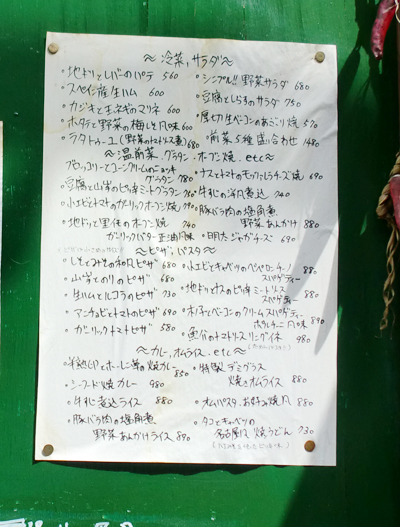 〜 冷菜、サラダ 〜
・地ドリとレバーのパテ 560
・スペイン産生ハム 600
・カジキと玉ネギのマリネ 600
・ホタテと野菜の梅しそ風味 600
・ラタトゥーユ(野菜のトマトソース煮) 680
・シンプル!! 野菜サラダ 680
・豆腐としらすのサラダ 750
・厚切生ベーコンのあぶり焼 570
・前菜5種盛り合わせ 1480
〜 温前菜、グラタン、オーブン焼. etc 〜
ブロッコリーとコーンクリームのニョッキ
グラタン 780
・豆腐と山芋のピリ辛ミートグラタン
・小エビとトマトのガーリックオーブン焼 790
・地ドリと里イモのオーブン焼
ガーリックバター正油風味
・ナスとトマトのモッツァレラチーズ焼 690
・牛ホホの洋風煮込 940
・豚バラ肉の塩角煮
野菜あんかけ 880
・明太ジャガチーズ 690
〜 ピザ、パスタ 〜
・しそとみその和風ピザ 680
・山芋とのりのピザ 680
・生ハムとルコラのピザ 930
・アンチョビトマトのピザ 690
・ガーリックトマトピザ 580
・小エビとキャベツのペペロンチーノ
スパゲティー 880
・地ドリとナスのピリ辛ミートソース
スパゲティー 880
・木ノ子とベーコンのクリームスパゲティー
ポルチーニ風味 890
・魚介のトマトソースリングイネ 980
〜 カレー、オムライス. etc 〜
・シーフード焼カレー 980
・牛ホホ煮込ライス 880
・豚バラ肉の塩角煮
野菜あんかけライス 890
・特製デミグラス
焼きオムライス 880
・オムパスタ、お好み焼風 880
・タコとキャベツの
名古屋風 焼うどん 730